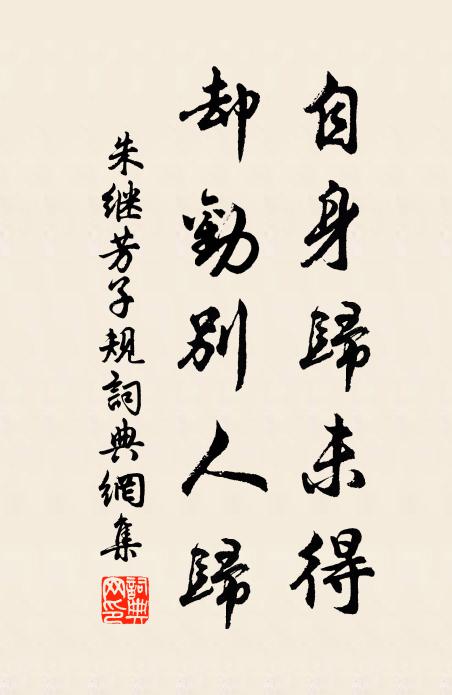 自身歸未得
却勸別人歸
朱继芳子規詞典網集
詞典网印